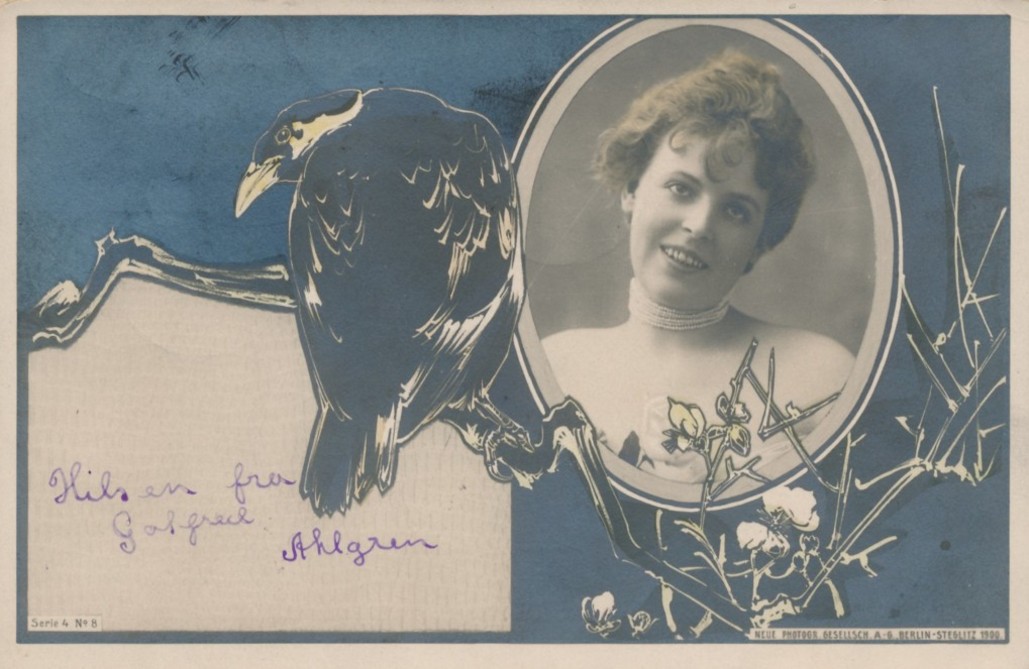 Hilsen fra
Gotfred
Ahlgren
Serie 4 No 8
NEUE PHOTOGR. GESELLSCH. A.-G. BERLIN-STEGLITZ 1900